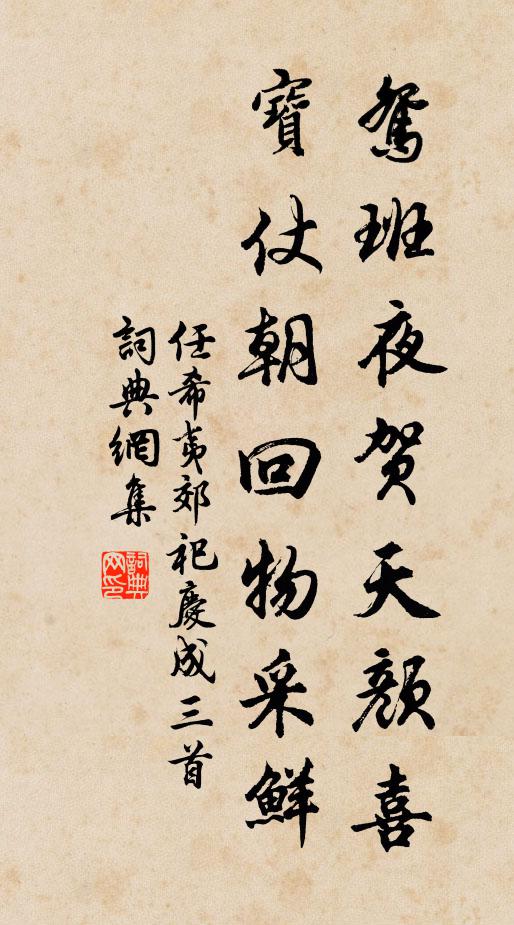 鴛班夜贺天顏喜
寶仗朝回物采鮮
任希夷郊祀慶成三首
詞典網集
詞典網印